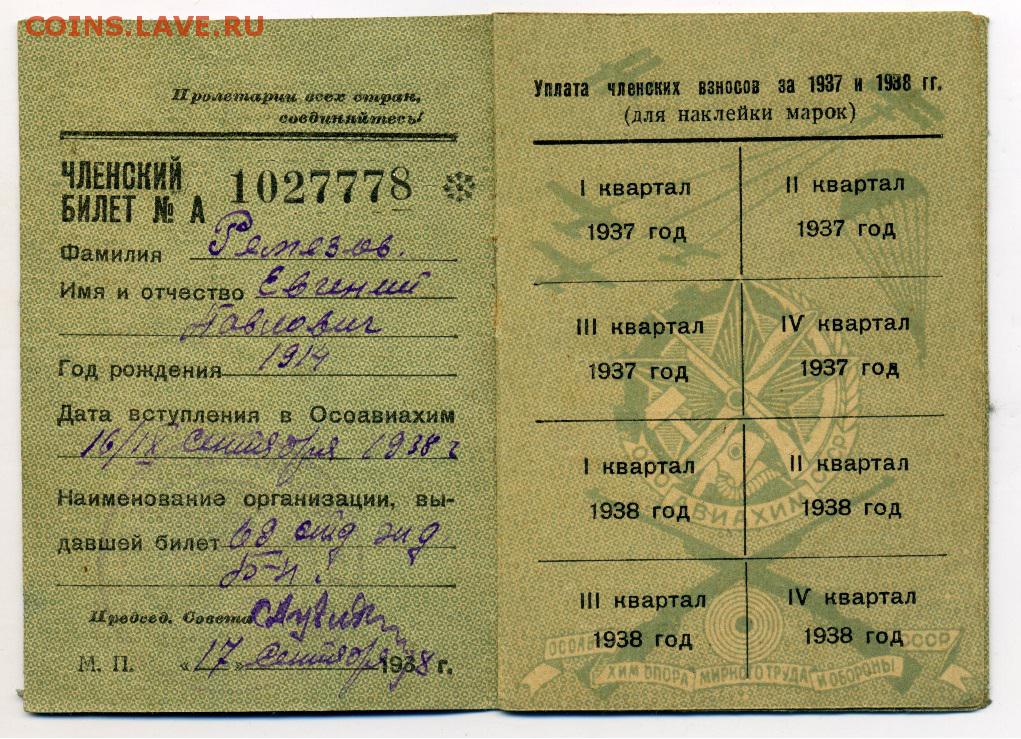 COINS.LAVE.RU
Пролетарии всех стран,
соединяйтесь!
ЧЛЕНСКИЙ
БИЛЕТ № А 1027778
Фамилия Ремезов.
Имя и отчество Евгений
Павлович
Год рождения 1914
Дата вступления в Осоавиахим
16/IX сентября 1938 г
Наименование организации, вы-
давшей билет
Председ. Совета
М. П. «17» сентября 1938 г.
Уплата членских взносов за 1937 и 1938 гг.
(для наклейки марок)
I квартал
1937 год
II квартал
1937 год
III квартал
1937 год
IV квартал
1937 год
I квартал
1938 год
II квартал
1938 год
III квартал
1938 год
IV квартал
1938 год
ОСОАВИАХИМ СССР
ОСОАВ СССР
ХИМ ОПОРА МИРНОГО ТРУДА И ОБОРОНЫ